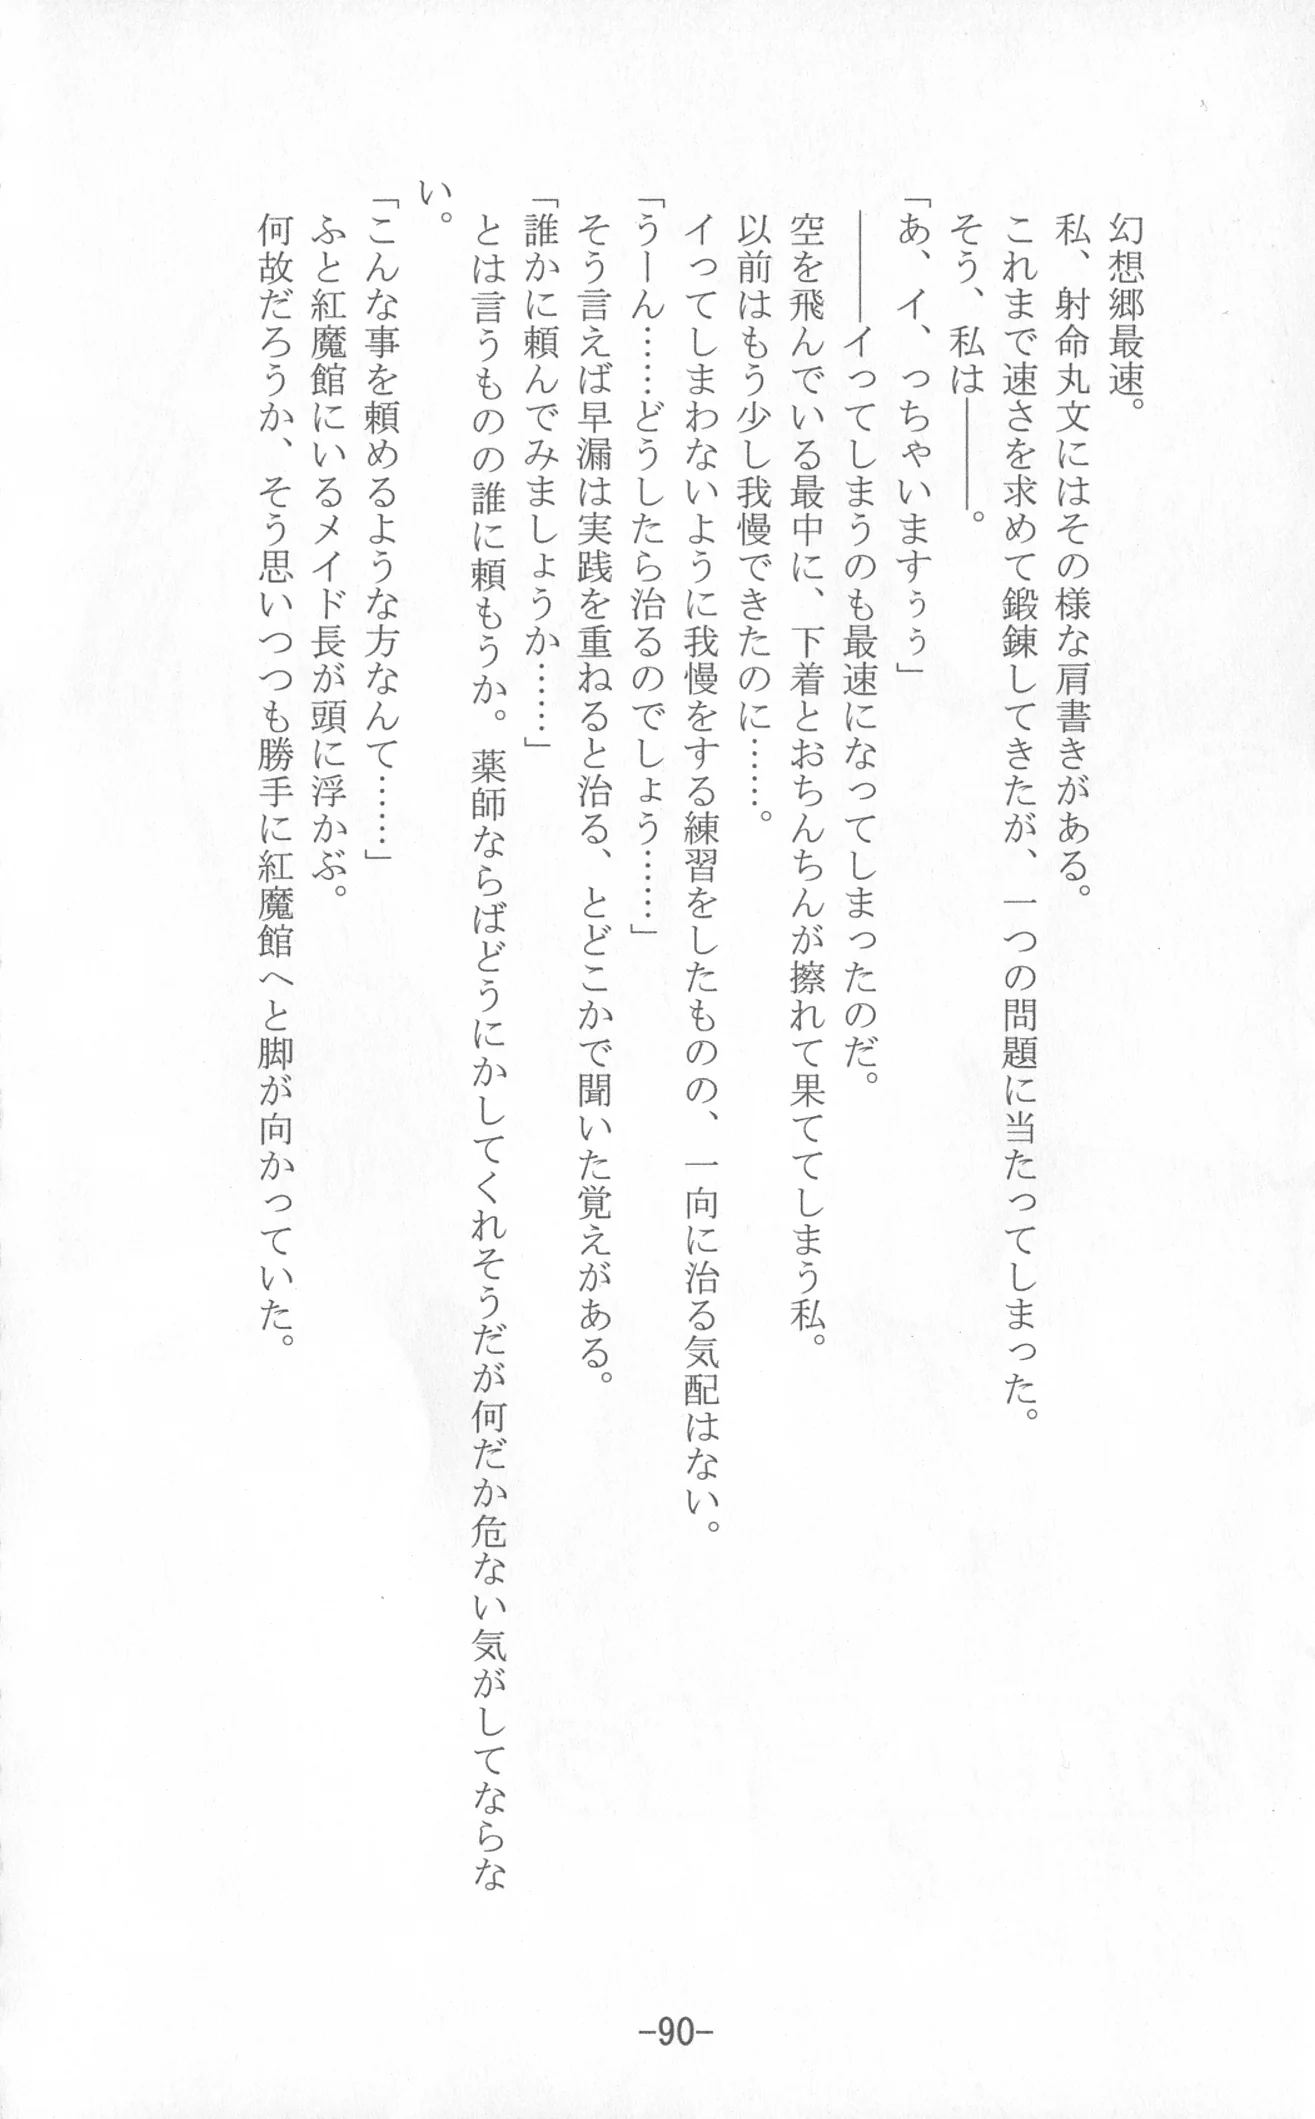 幻想郷最速。
私、射命丸文にはその様な肩書きがある。
これまで速さを求めて鍛錬してきたが、一つの問題に当たってしまった。
そう、私は―――。
「あ、イ、っちゃいますぅぅ」
―――イってしまうのも最速になってしまったのだ。
空を飛んでいる最中に、下着とおちんちんが擦れて果ててしまう私。
以前はもう少し我慢できたのに……。
イってしまわないように我慢をする練習をしたものの、一向に治る気配はない。
「うーん……どうしたら治るのでしょう……」
そう言えば早漏は実践を重ねると治る、とどこかで聞いた覚えがある。
「誰かに頼んでみましょうか……」
とは言うものの誰に頼もうか。薬師ならばどうにかしてくれそうだが何だか危ない気がしてならな
い。
「こんな事を頼めるような方なんて……」
ふと紅魔館にいるメイド長が頭に浮かぶ。
何故だろうか、そう思いつつも勝手に紅魔館へと脚が向かっていた。
-90-